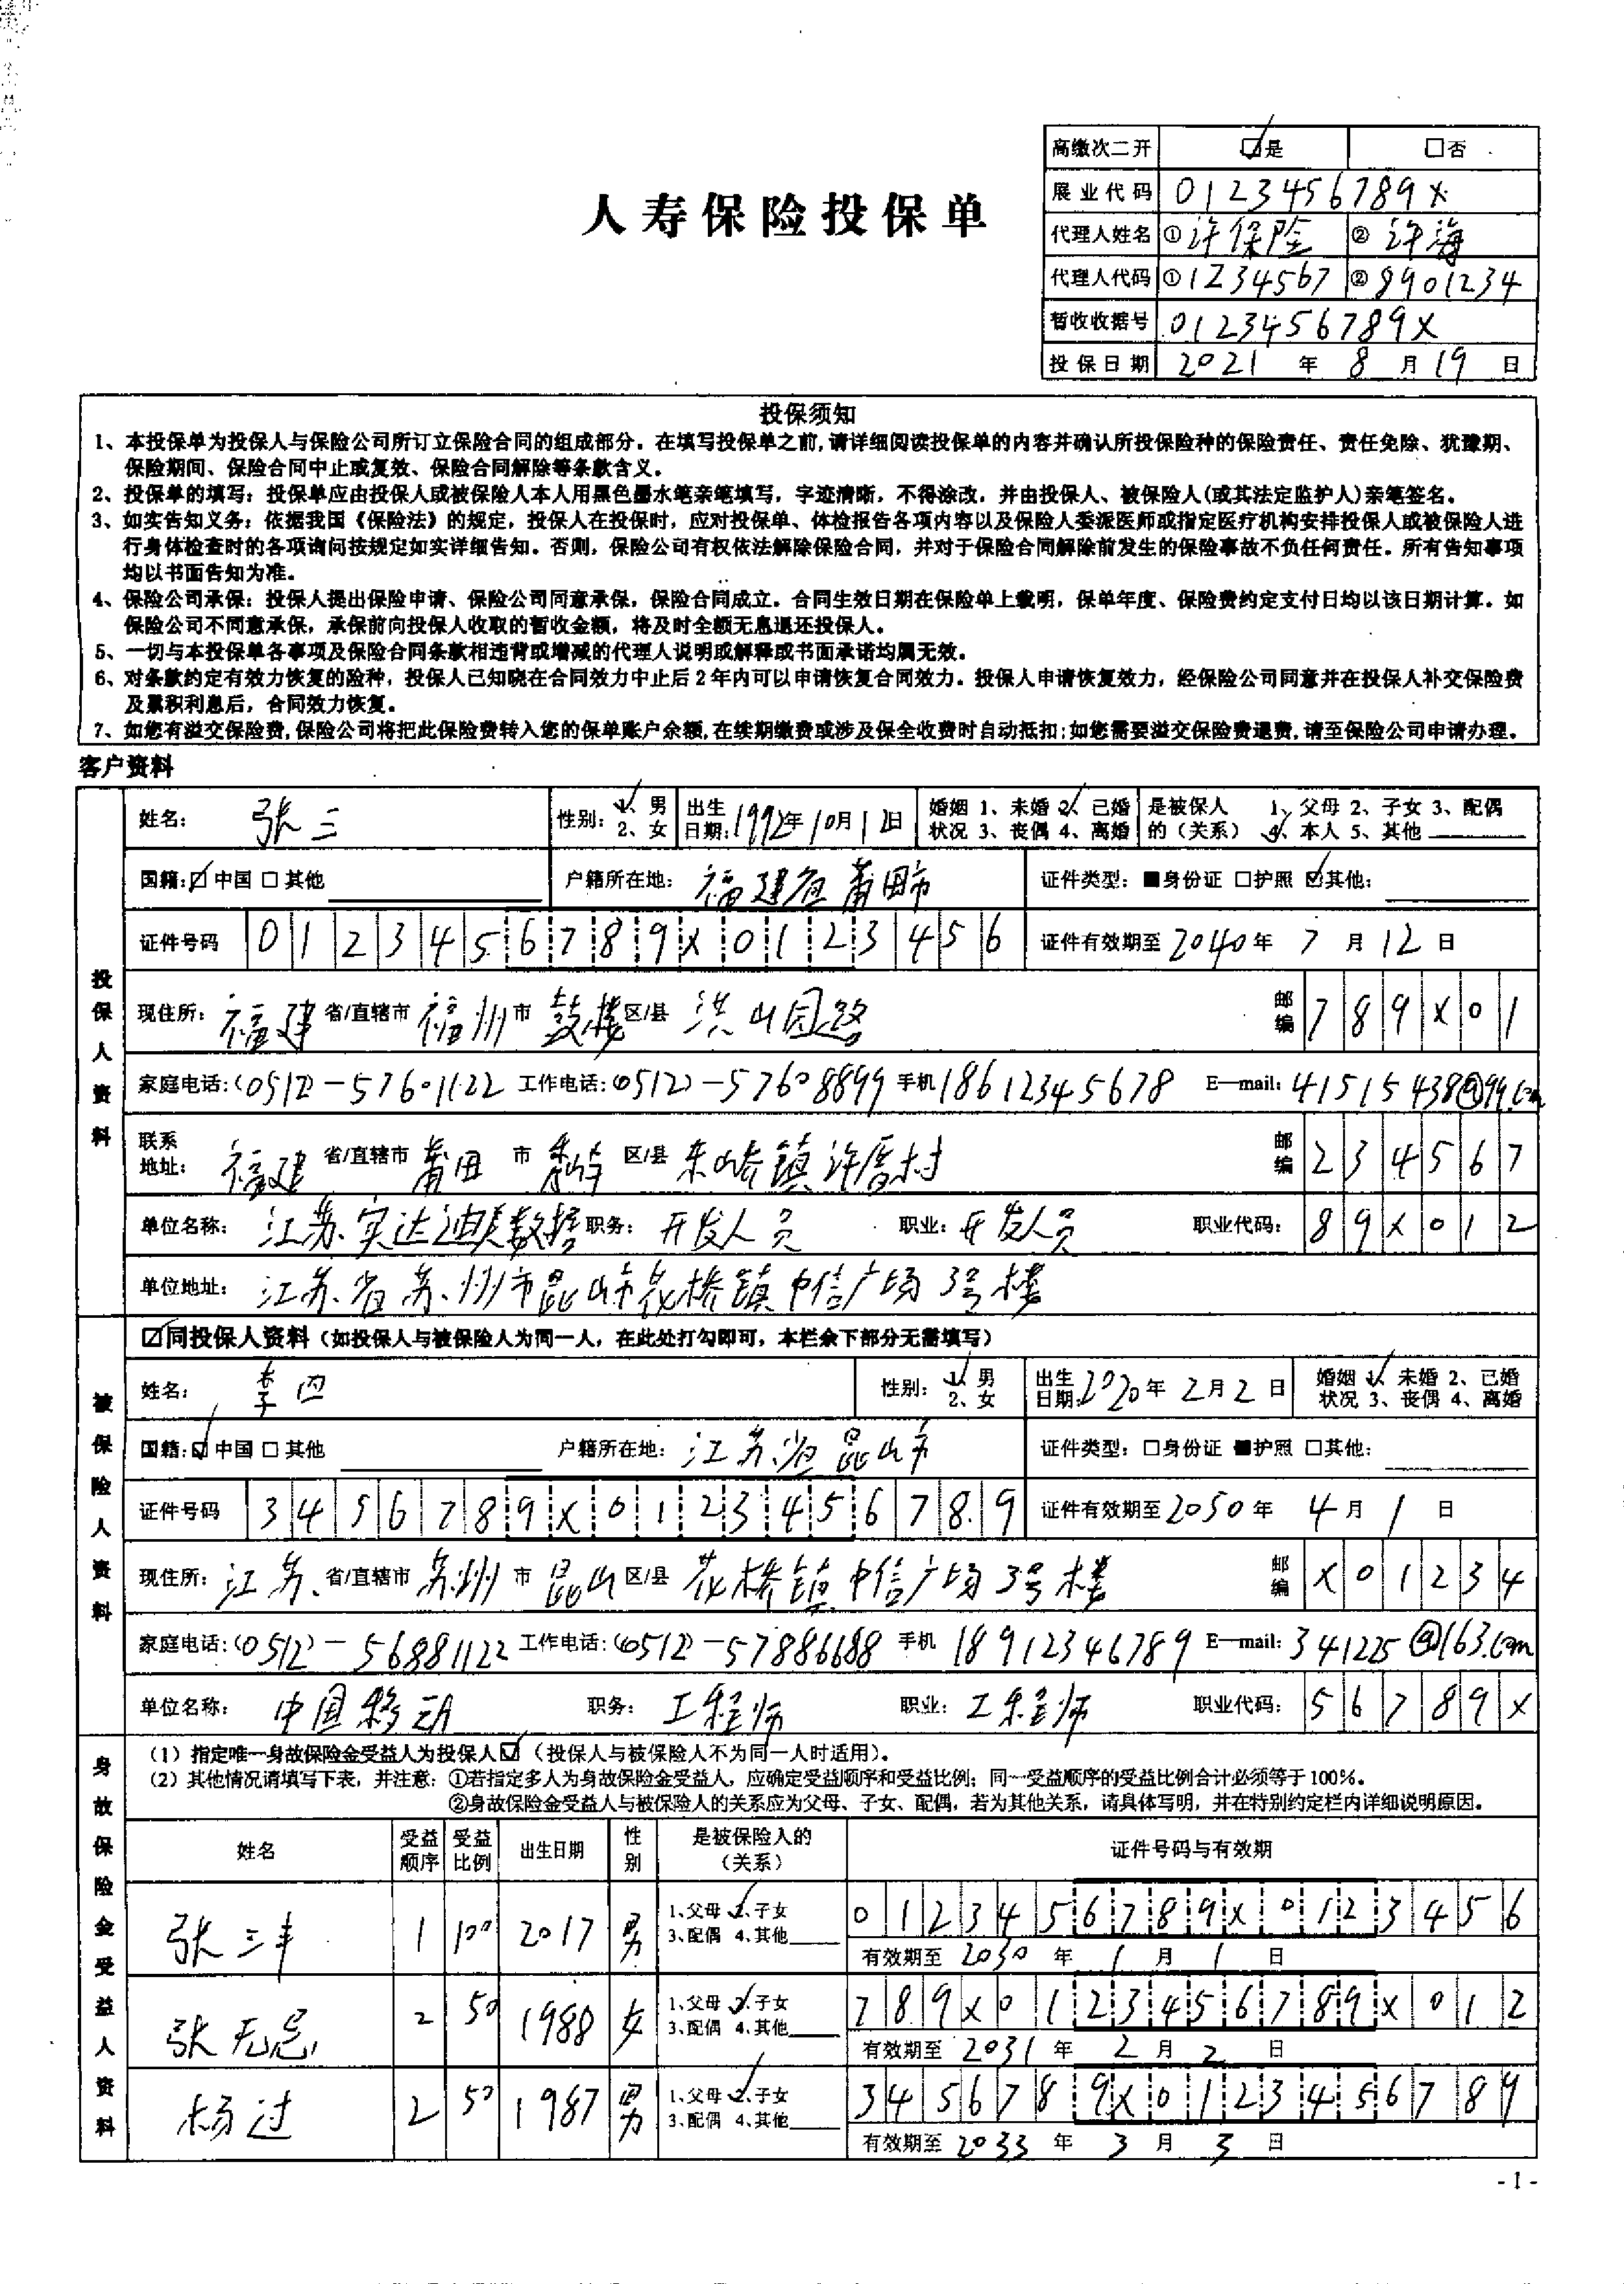 高缴次二开 ☑是 □否
人寿保险投保单
展业代码 0123456789X
代理人姓名 ①许保险 ②许海
代理人代码 ①1234567 ②8901234
暂收收据号 0123456789X
投保日期 2021 年 8 月 19 日
投保须知
1、本投保单为投保人与保险公司所订立保险合同的组成部分。在填写投保单之前,请详细阅读投保单的内容并确认所投保险种的保险责任、责任免除、犹豫期、
保险期间、保险合同中止或复效、保险合同解除等条款含义。
2、投保单的填写：投保单应由投保人或被保险人本人用黑色墨水笔亲笔填写，字迹清晰，不得涂改，并由投保人、被保险人(或其法定监护人)亲笔签名。
3、如实告知义务：依据我国《保险法》的规定，投保人在投保时，应对投保单、体检报告各项内容以及保险人委派医师或指定医疗机构安排投保人或被保险人进
行身体检查时的各项询问按规定如实详细告知。否则，保险公司有权依法解除保险合同，并对于保险合同解除前发生的保险事故不负任何责任。所有告知事项
均以书面告知为准。
4、保险公司承保：投保人提出保险申请、保险公司同意承保，保险合同成立。合同生效日期在保险单上载明，保单年度、保险费约定支付日均以该日期计算。如
保险公司不同意承保，承保前向投保人收取的暂收金额，将及时全额无息退还投保人。
5、一切与本投保单各事项及保险合同条款相违背或增减的代理人说明或解释或书面承诺均属无效。
6、对条款约定有效力恢复的险种，投保人已知晓在合同效力中止后2年内可以申请恢复合同效力。投保人申请恢复效力，经保险公司同意并在投保人补交保险费
及累积利息后，合同效力恢复。
7、如您有溢交保险费,保险公司将把此保险费转入您的保单账户余额,在续期缴费或涉及保全收费时自动抵扣;如您需要溢交保险费退费,请至保险公司申请办理。
客户资料
投保人资料
姓名： 张三 性别： 1、男 2、女 出生日期: 1992年10月12日 婚姻状况 1、未婚 2、已婚 3、丧偶 4、离婚 是被保人的（关系） 1、父母 2、子女 3、配偶 4、本人 5、其他
国籍:☑中国 □其他 户籍所在地： 福建省莆田市 证件类型：■身份证 □护照 ☑其他：
证件号码 0123456789X0123456 证件有效期至 2040年 7 月 12 日
现住所： 福建 省/直辖市 福州 市 鼓楼 区/县 洪山园路 邮编 789X01
家庭电话:(0512)-57601122 工作电话:(0512)-57608899 手机 18612345678 E—mail: 41515438@99.com
联系地址： 福建 省/直辖市 莆田 市 秀屿 区/县 东峤镇许厝村 邮编 234567
单位名称： 江苏实达迪美数据 职务： 开发人员 职业： 开发人员 职业代码： 89X012
单位地址： 江苏省苏州市昆山市花桥镇中信广场3号楼
被保险人资料
☑同投保人资料（如投保人与被保险人为同一人，在此处打勾即可，本栏余下部分无需填写）
姓名： 李四 性别： 1、男 2、女 出生日期: 2020年 2月 2 日 婚姻状况 1、未婚 2、已婚 3、丧偶 4、离婚
国籍:☑中国 □其他 户籍所在地： 江苏省昆山市 证件类型：□身份证 ■护照 □其他：
证件号码 3456789X0123456789 证件有效期至 2050年 4 月 1 日
现住所： 江苏 省/直辖市 苏州 市 昆山 区/县 花桥镇中信广场3号楼 邮编 X01234
家庭电话:(0512)-56881122 工作电话:(0512)-57886688 手机 18912346789 E—mail: 341225@163.com
单位名称： 中国移动 职务： 工程师 职业： 工程师 职业代码： 56789X
身故保险金受益人资料
（1）指定唯一身故保险金受益人为投保人☑（投保人与被保险人不为同一人时适用）。
（2）其他情况请填写下表，并注意：①若指定多人为身故保险金受益人，应确定受益顺序和受益比例；同一受益顺序的受益比例合计必须等于100%。
②身故保险金受益人与被保险人的关系应为父母、子女、配偶，若为其他关系，请具体写明，并在特别约定栏内详细说明原因。
姓名 受益顺序 受益比例 出生日期 性别 是被保险人的（关系） 证件号码与有效期
张三丰 1 100 2017 男 1、父母 2、子女 3、配偶 4、其他 0123456789X0123456
有效期至 2030 年 1 月 1 日
张无忌 2 50 1988 女 1、父母 2、子女 3、配偶 4、其他 789X0123456789X012
有效期至 2031 年 2 月 2 日
杨过 2 50 1987 男 1、父母 2、子女 3、配偶 4、其他 3456789X0123456789
有效期至 2033 年 3 月 3 日
- 1 -